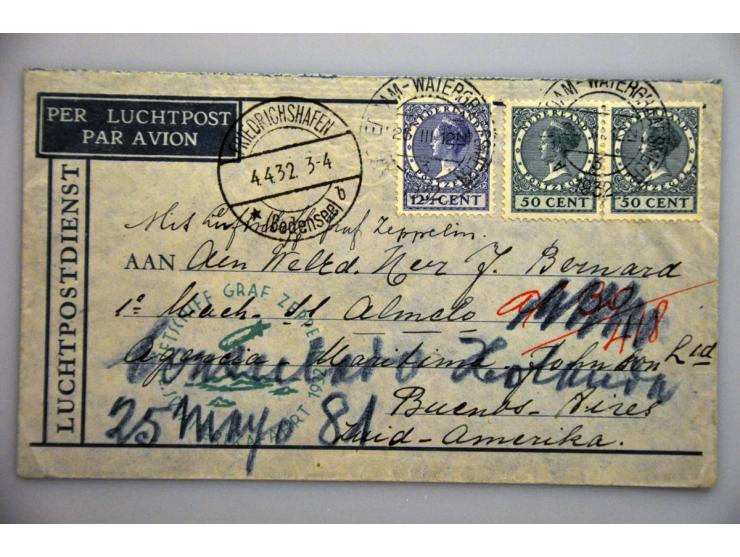 PER LUCHTPOST
PAR AVION
LUCHTPOSTDIENST
FRIEDRICHSHAFEN
4.4.32. 3-4
* (Bodensee) b
NEDERLAND
12½ CENT
NEDERLAND
50 CENT
NEDERLAND
50 CENT
1932
Met Luftschiff Graf Zeppelin.
AAN Den Weled. Heer J. Bernard
1e Mach. SS Almelo
a/ 30
418
LUFTSCHIFF GRAF ZEPPELIN
1932
Agencia Maritima Johnson Ltd
Consulado Holanda
Buenos-Aires
25 Mayo 81
Zuid-Amerika.